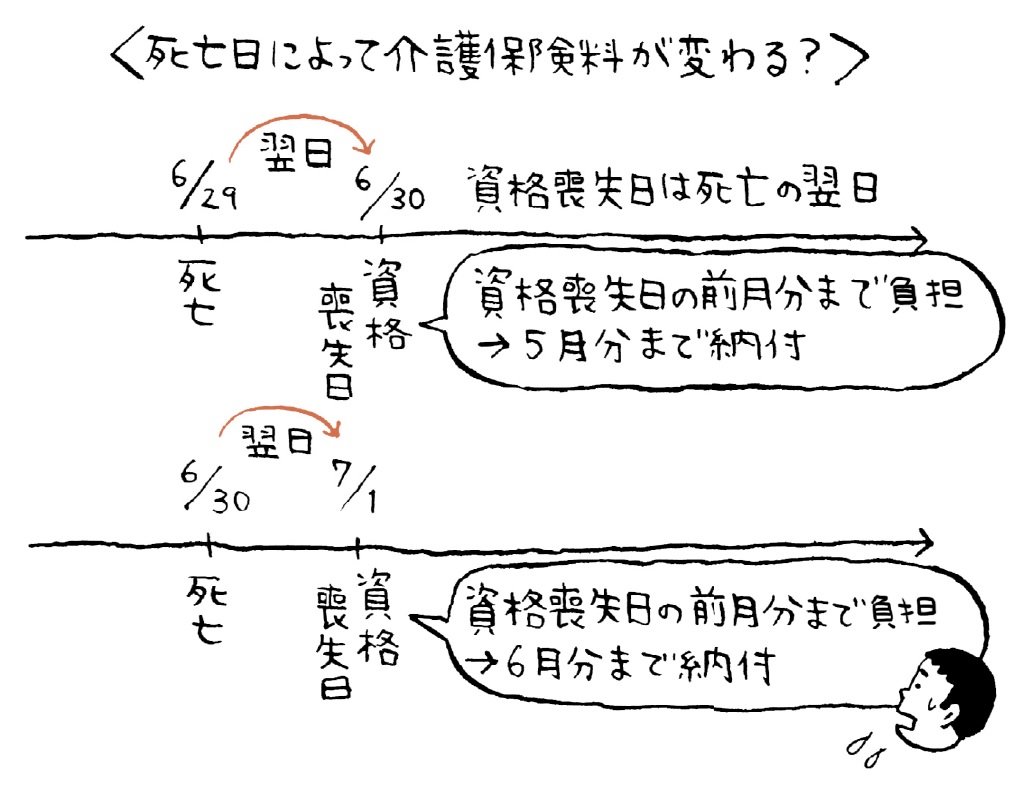 <死亡日によって介護保険料が変わる?>
翌日
6/29
6/30
資格喪失日は死亡の翌日
死亡
資格
喪失日
資格喪失日の前月分まで負担
→5月分まで納付
翌日
6/30
7/1
死亡
資格
喪失日
資格喪失日の前月分まで負担
→6月分まで納付